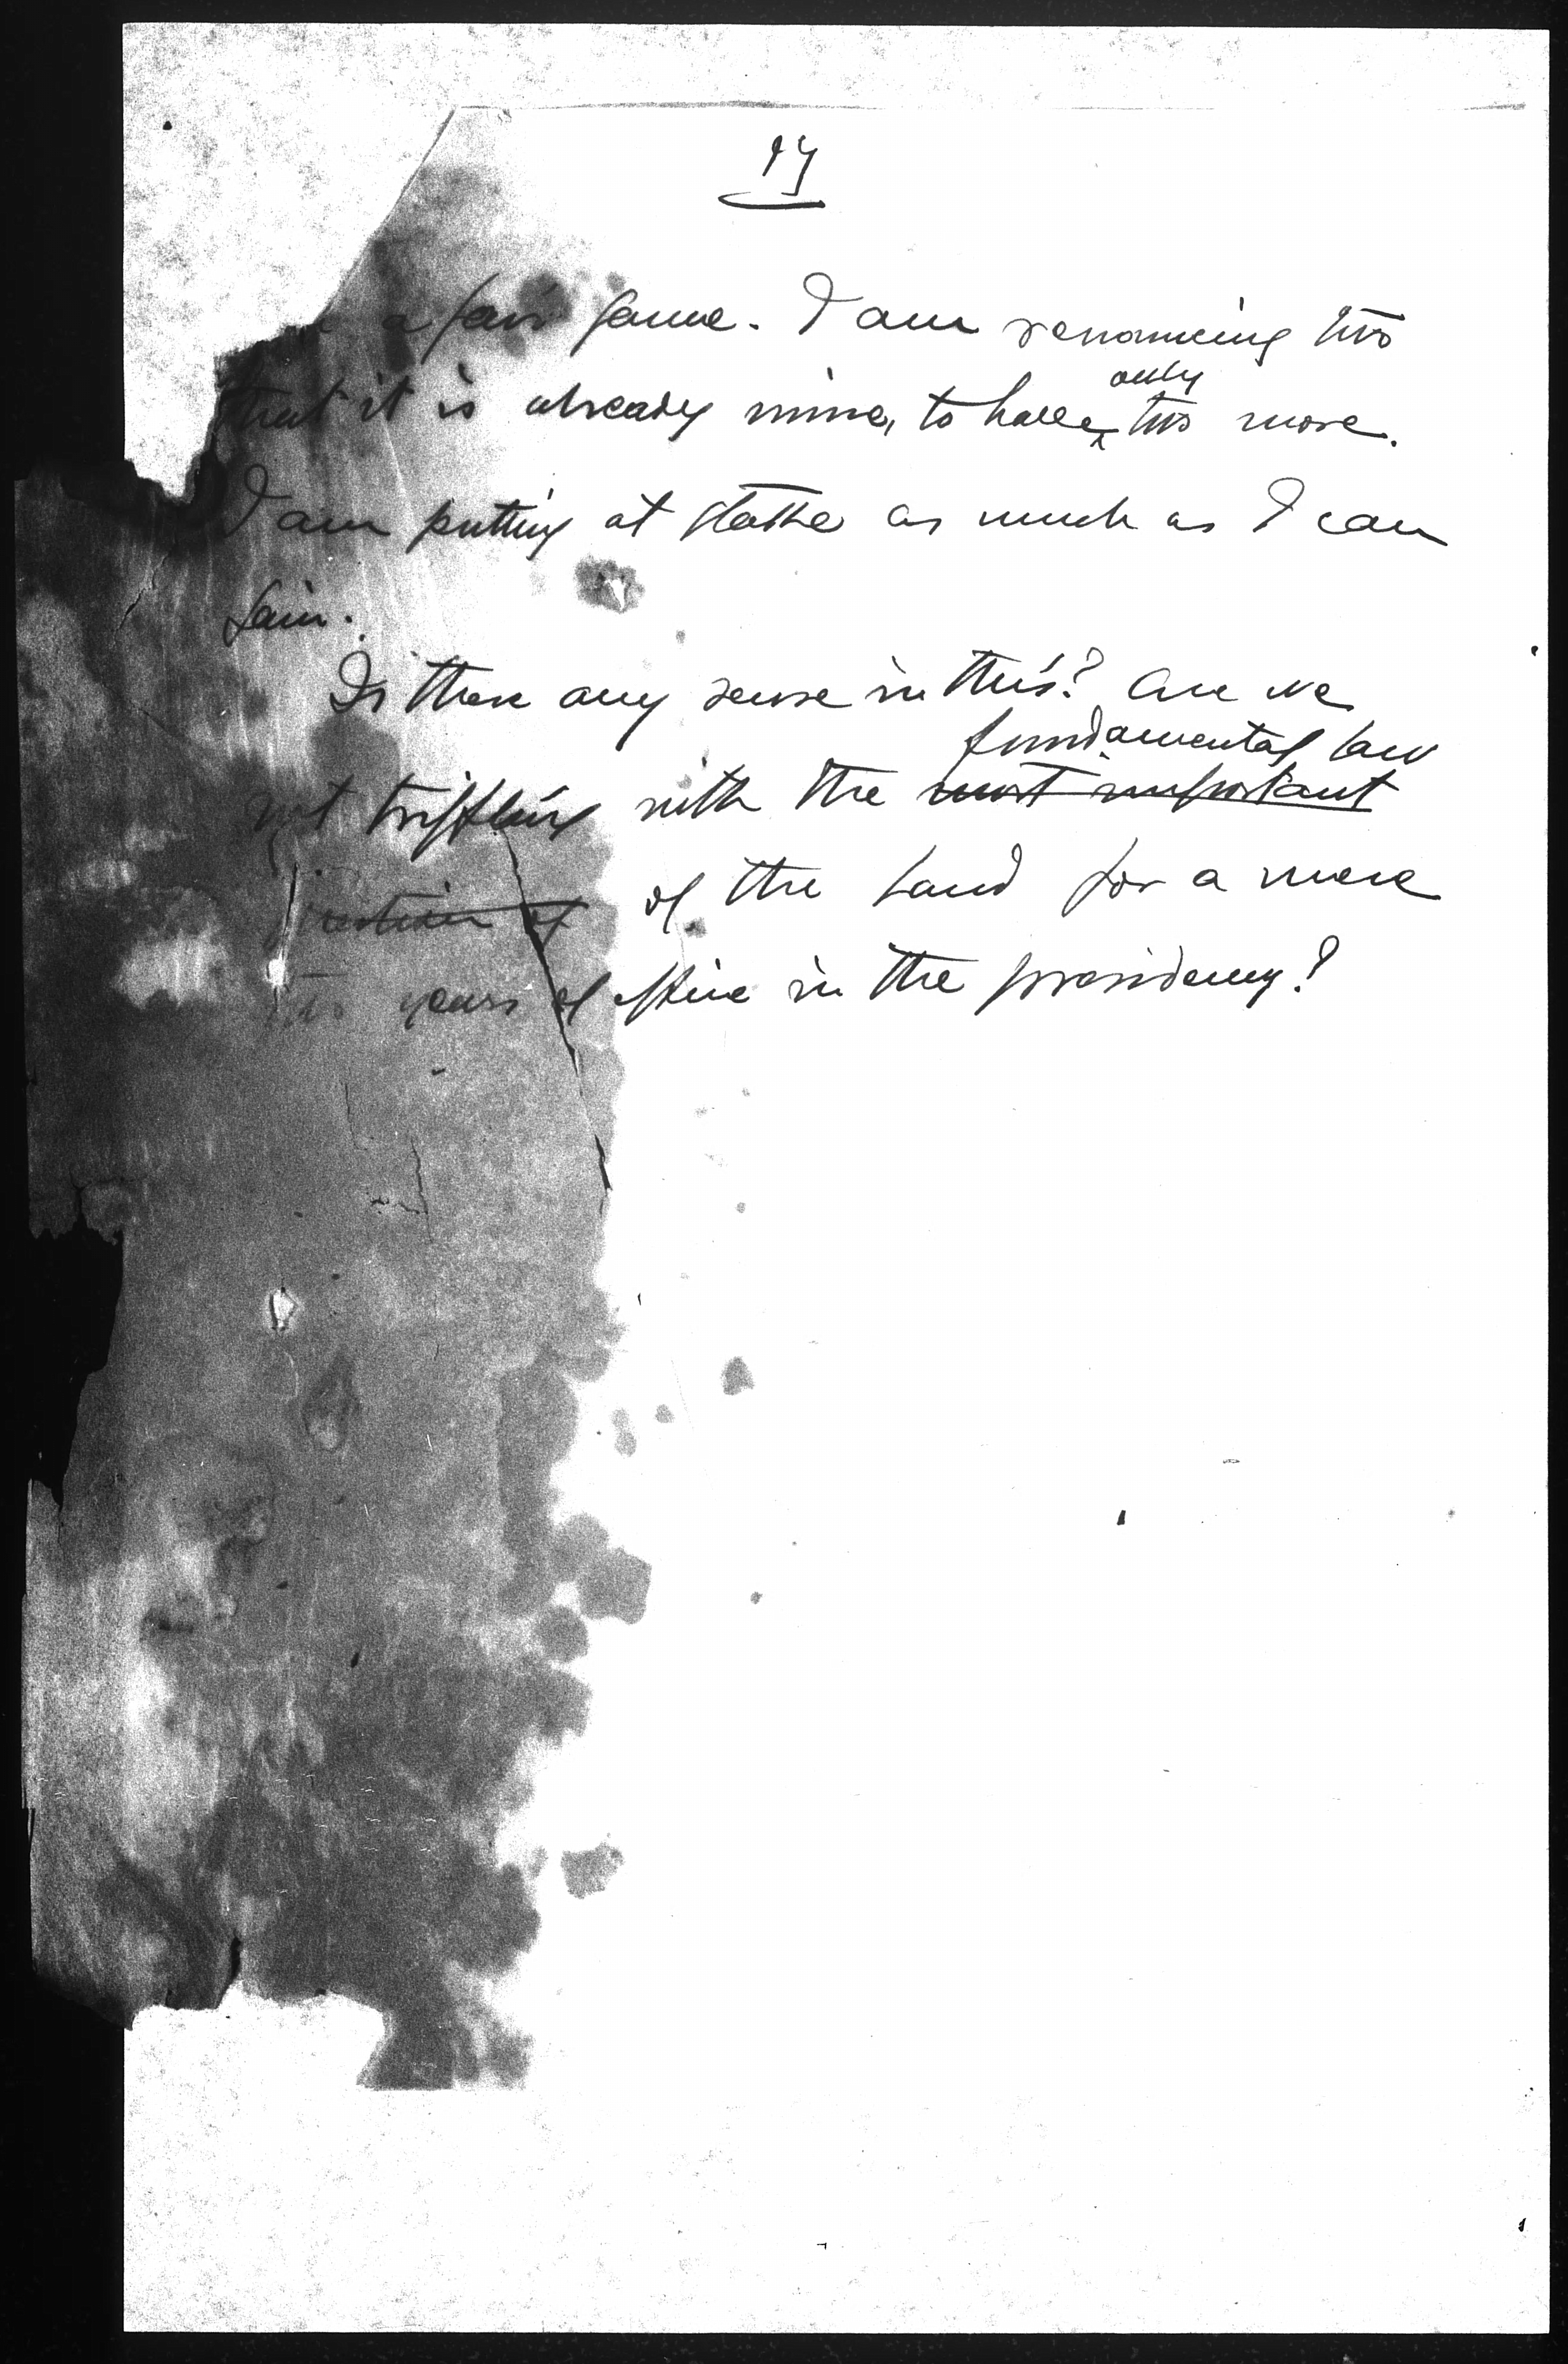 17
a fair game. I am renouncing two
that it is already mine, to have only two more.
I am putting at stake as much as I can
gain.
Is there any sense in this? Are we
not triffling with the fundamental law
most important
question of of the land for a mere
two years of office in the presidency?